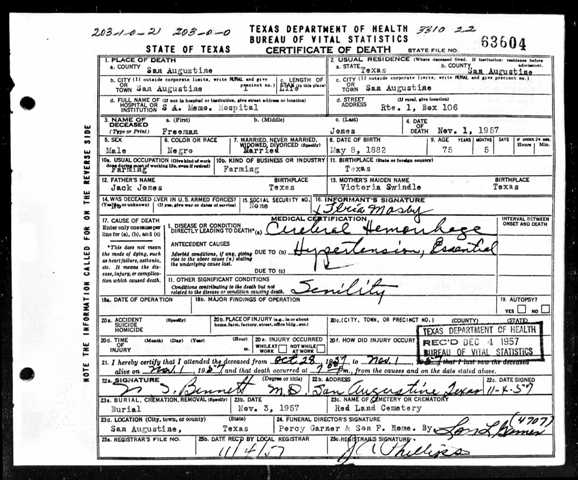 203-10-21 203-0-0
TEXAS DEPARTMENT OF HEALTH
3310 22
BUREAU OF VITAL STATISTICS
STATE OF TEXAS
CERTIFICATE OF DEATH
STATE FILE NO.
63604
1. PLACE OF DEATH
2. USUAL RESIDENCE (Where deceased lived. If institution: residence before admission)
a. COUNTY
San Augustine
a. STATE
Texas
b. COUNTY
San Augustine
b. CITY (If outside corporate limits, write RURAL and give precinct no.)
OR TOWN San Augustine
c. LENGTH OF STAY (in this place)
Life
c. CITY (If outside corporate limits, write RURAL and give precinct no.)
OR TOWN San Augustine
d. FULL NAME OF (If not in hospital or institution, give street address or location)
HOSPITAL OR INSTITUTION S A. Memo. Hospital
d. STREET ADDRESS (If rural, give location)
Rte. 1, Box 106
3. NAME OF DECEASED (Type or Print)
a. (First)
Freeman
b. (Middle)
c. (Last)
Jones
4. DATE OF DEATH
Nov. 1, 1957
5. SEX
Male
6. COLOR OR RACE
Negro
7. MARRIED, NEVER MARRIED, WIDOWED, DIVORCED (Specify)
Married
8. DATE OF BIRTH
May 8, 1882
9. AGE YEARS
75
MONTHS
5
DAYS
10a. USUAL OCCUPATION (Give kind of work done during most of working life, even if retired)
Farming
10b. KIND OF BUSINESS OR INDUSTRY
Farming
11. BIRTHPLACE (State or foreign country)
Texas
12. FATHER'S NAME
Jack Jones
BIRTHPLACE
Texas
13. MOTHER'S MAIDEN NAME
Victoria Swindle
BIRTHPLACE
Texas
14. WAS DECEASED EVER IN U.S. ARMED FORCES?
15. SOCIAL SECURITY NO.
None
16. INFORMANT'S SIGNATURE
Mosby
17. CAUSE OF DEATH
Enter only one cause per line for (a), (b), and (c)
MEDICAL CERTIFICATION
INTERVAL BETWEEN ONSET AND DEATH
I. DISEASE OR CONDITION DIRECTLY LEADING TO DEATH* (a)
Cerebral Hemorrhage
*This does not mean the mode of dying, such as heart failure, asthenia, etc. It means the disease, injury, or complication which caused death.
ANTECEDENT CAUSES
Morbid conditions, if any, giving rise to the above cause (a) stating the underlying cause last.
DUE TO (b)
Hypertension, Essential
DUE TO (c)
II. OTHER SIGNIFICANT CONDITIONS
Conditions contributing to the death but not related to the disease or condition causing death.
Senility
18a. DATE OF OPERATION
18b. MAJOR FINDINGS OF OPERATION
19. AUTOPSY?
YES NO
20a. ACCIDENT SUICIDE HOMICIDE (Specify)
20b. PLACE OF INJURY (e.g., in or about home, farm, factory, street, office bldg., etc.)
20c. (CITY, TOWN, OR PRECINCT NO.) (COUNTY) (STATE)
20d. TIME OF INJURY (Month) (Day) (Year) (Hour)
20e. INJURY OCCURRED
WHILE AT WORK NOT WHILE AT WORK
20f. HOW DID INJURY OCCUR?
TEXAS DEPARTMENT OF HEALTH
REC'D DEC 4 1957
BUREAU OF VITAL STATISTICS
21. I hereby certify that I attended the deceased from Oct 28 1957 to Nov. 1 1957 that I last saw the deceased
alive on Nov. 1 1957 and that death occurred at from the causes and on the date stated above.
22a. SIGNATURE
Bennett M.D.
(Degree or title)
22b. ADDRESS
San Augustine Texas
22c. DATE SIGNED
11-4-57
23a. BURIAL, CREMATION, REMOVAL (Specify)
Burial
23b. DATE
Nov. 3, 1957
23c. NAME OF CEMETERY OR CREMATORY
Red Land Cemetery
23d. LOCATION (City, town, or county) (State)
San Augustine, Texas
24. FUNERAL DIRECTOR'S SIGNATURE
(4707)
Percy Garner & Son F. Home. By
25a. REGISTRAR'S FILE NO.
25b. DATE REC'D BY LOCAL REGISTRAR
11/4/57
25c. REGISTRAR'S SIGNATURE
Phillips
NOTE THE INFORMATION CALLED FOR ON THE REVERSE SIDE